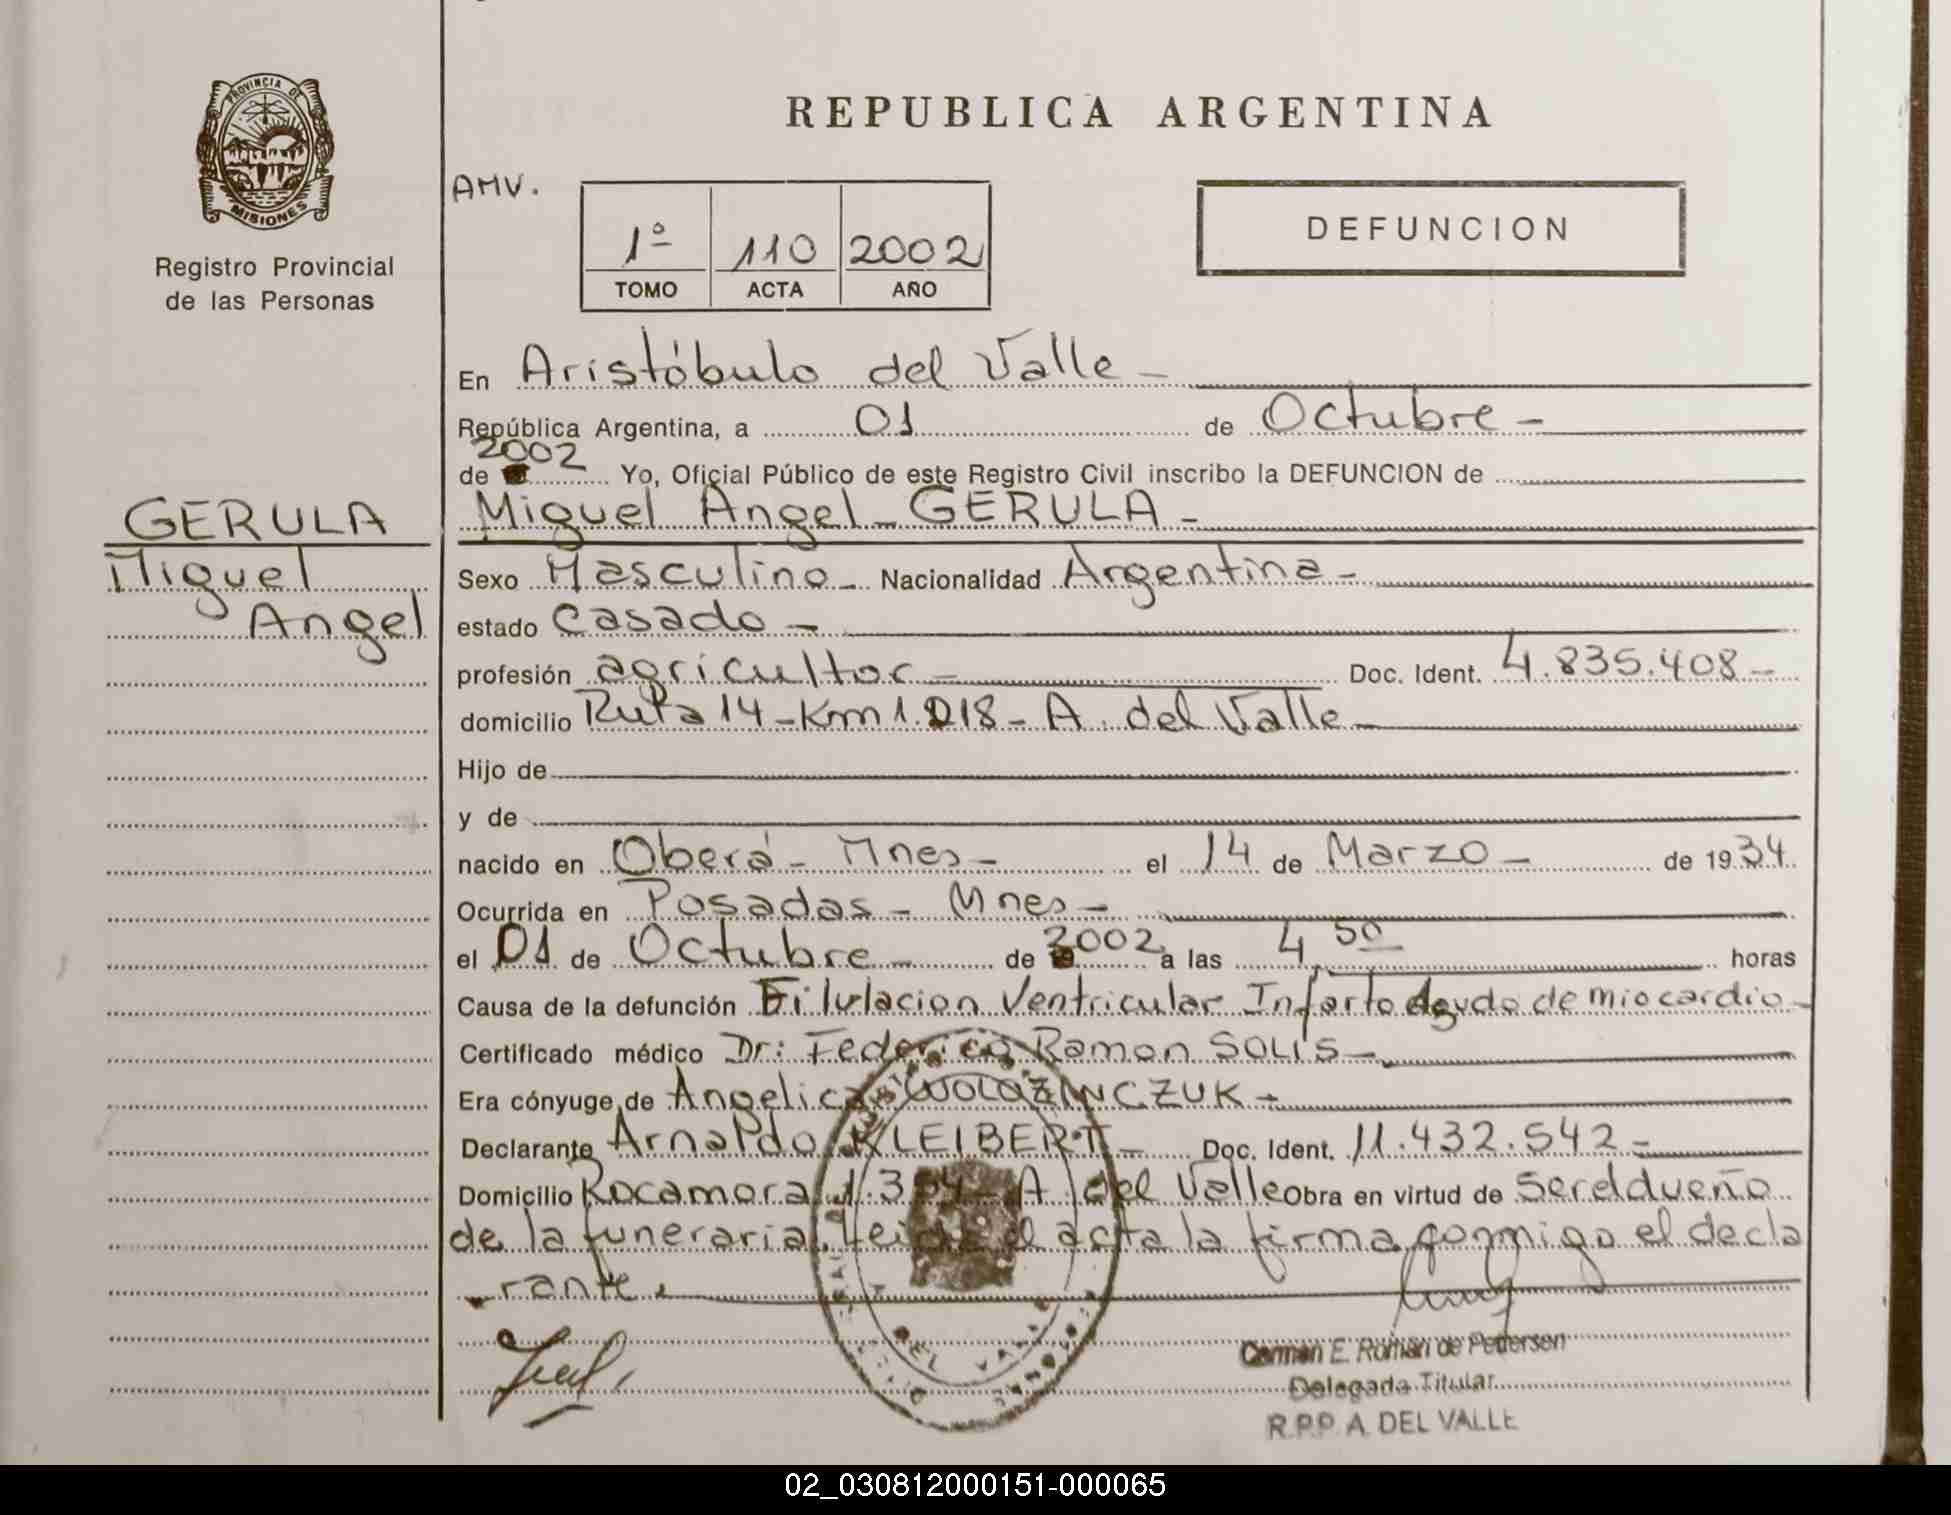 PROVINCIA DE
MISIONES
Registro Provincial
de las Personas
REPUBLICA ARGENTINA
AMV.
1º 110 2002
TOMO ACTA AÑO
DEFUNCION
En Aristóbulo del Valle -
República Argentina, a 01 de Octubre -
de 2002 Yo, Oficial Público de este Registro Civil inscribo la DEFUNCION de
GERULA
Miguel
Angel
Miguel Angel - GERULA -
Sexo Masculino - Nacionalidad Argentina -
estado Casado -
profesión agricultor - Doc. Ident. 4.835.408 -
domicilio Ruta 14 - Km 1.018 - A. del Valle -
Hijo de
y de
nacido en Oberá - Mnes - el 14 de Marzo - de 1934
Ocurrida en Posadas - Mnes -
el 01 de Octubre - de 2002 a las 4,50 horas
Causa de la defunción Filulacion Ventricular Infarto Agudo de miocardio -
Certificado médico Dr: Federico Ramon SOLIS -
Era cónyuge de Angelica WOLOZINCZUK -
Declarante Arnaldo KLEIBERT - Doc. Ident. 11.432.542 -
Domicilio Rocamora A. del Valle Obra en virtud de Ser el dueño
de la funeraria. Leida el acta la firma conmigo el decla
- rante.
Carmen E. Román de Pedersen
Delegada Titular
R.P.P. A. DEL VALLE
DEL VALLE
02_030812000151-000065